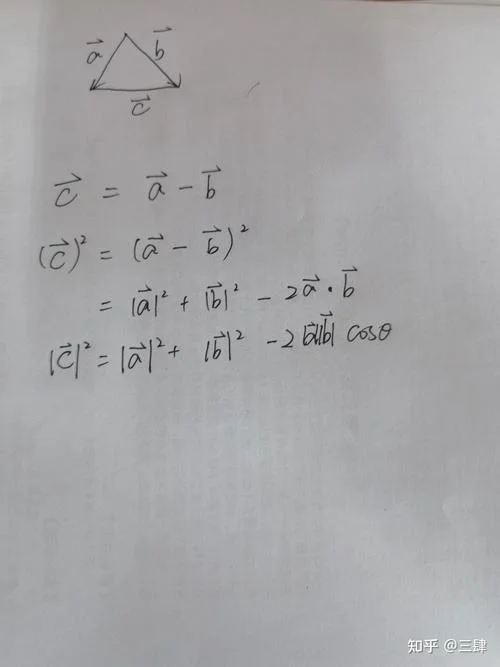 →a →b
→c
→c = →a - →b
(→c)² = (→a - →b)²
= |→a|² + |→b|² - 2→a · →b
|→c|² = |→a|² + |→b|² - 2|→a||→b| cosθ
知乎 @三肆